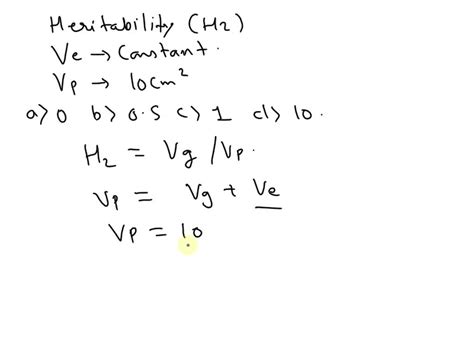 Heritability (H2)
Ve → Constant.
Vp → 10cm²
a> 0 b> 0.5 c> 1 d> 10.
H2 = Vg / Vp.
Vp = Vg + Ve
Vp = 10